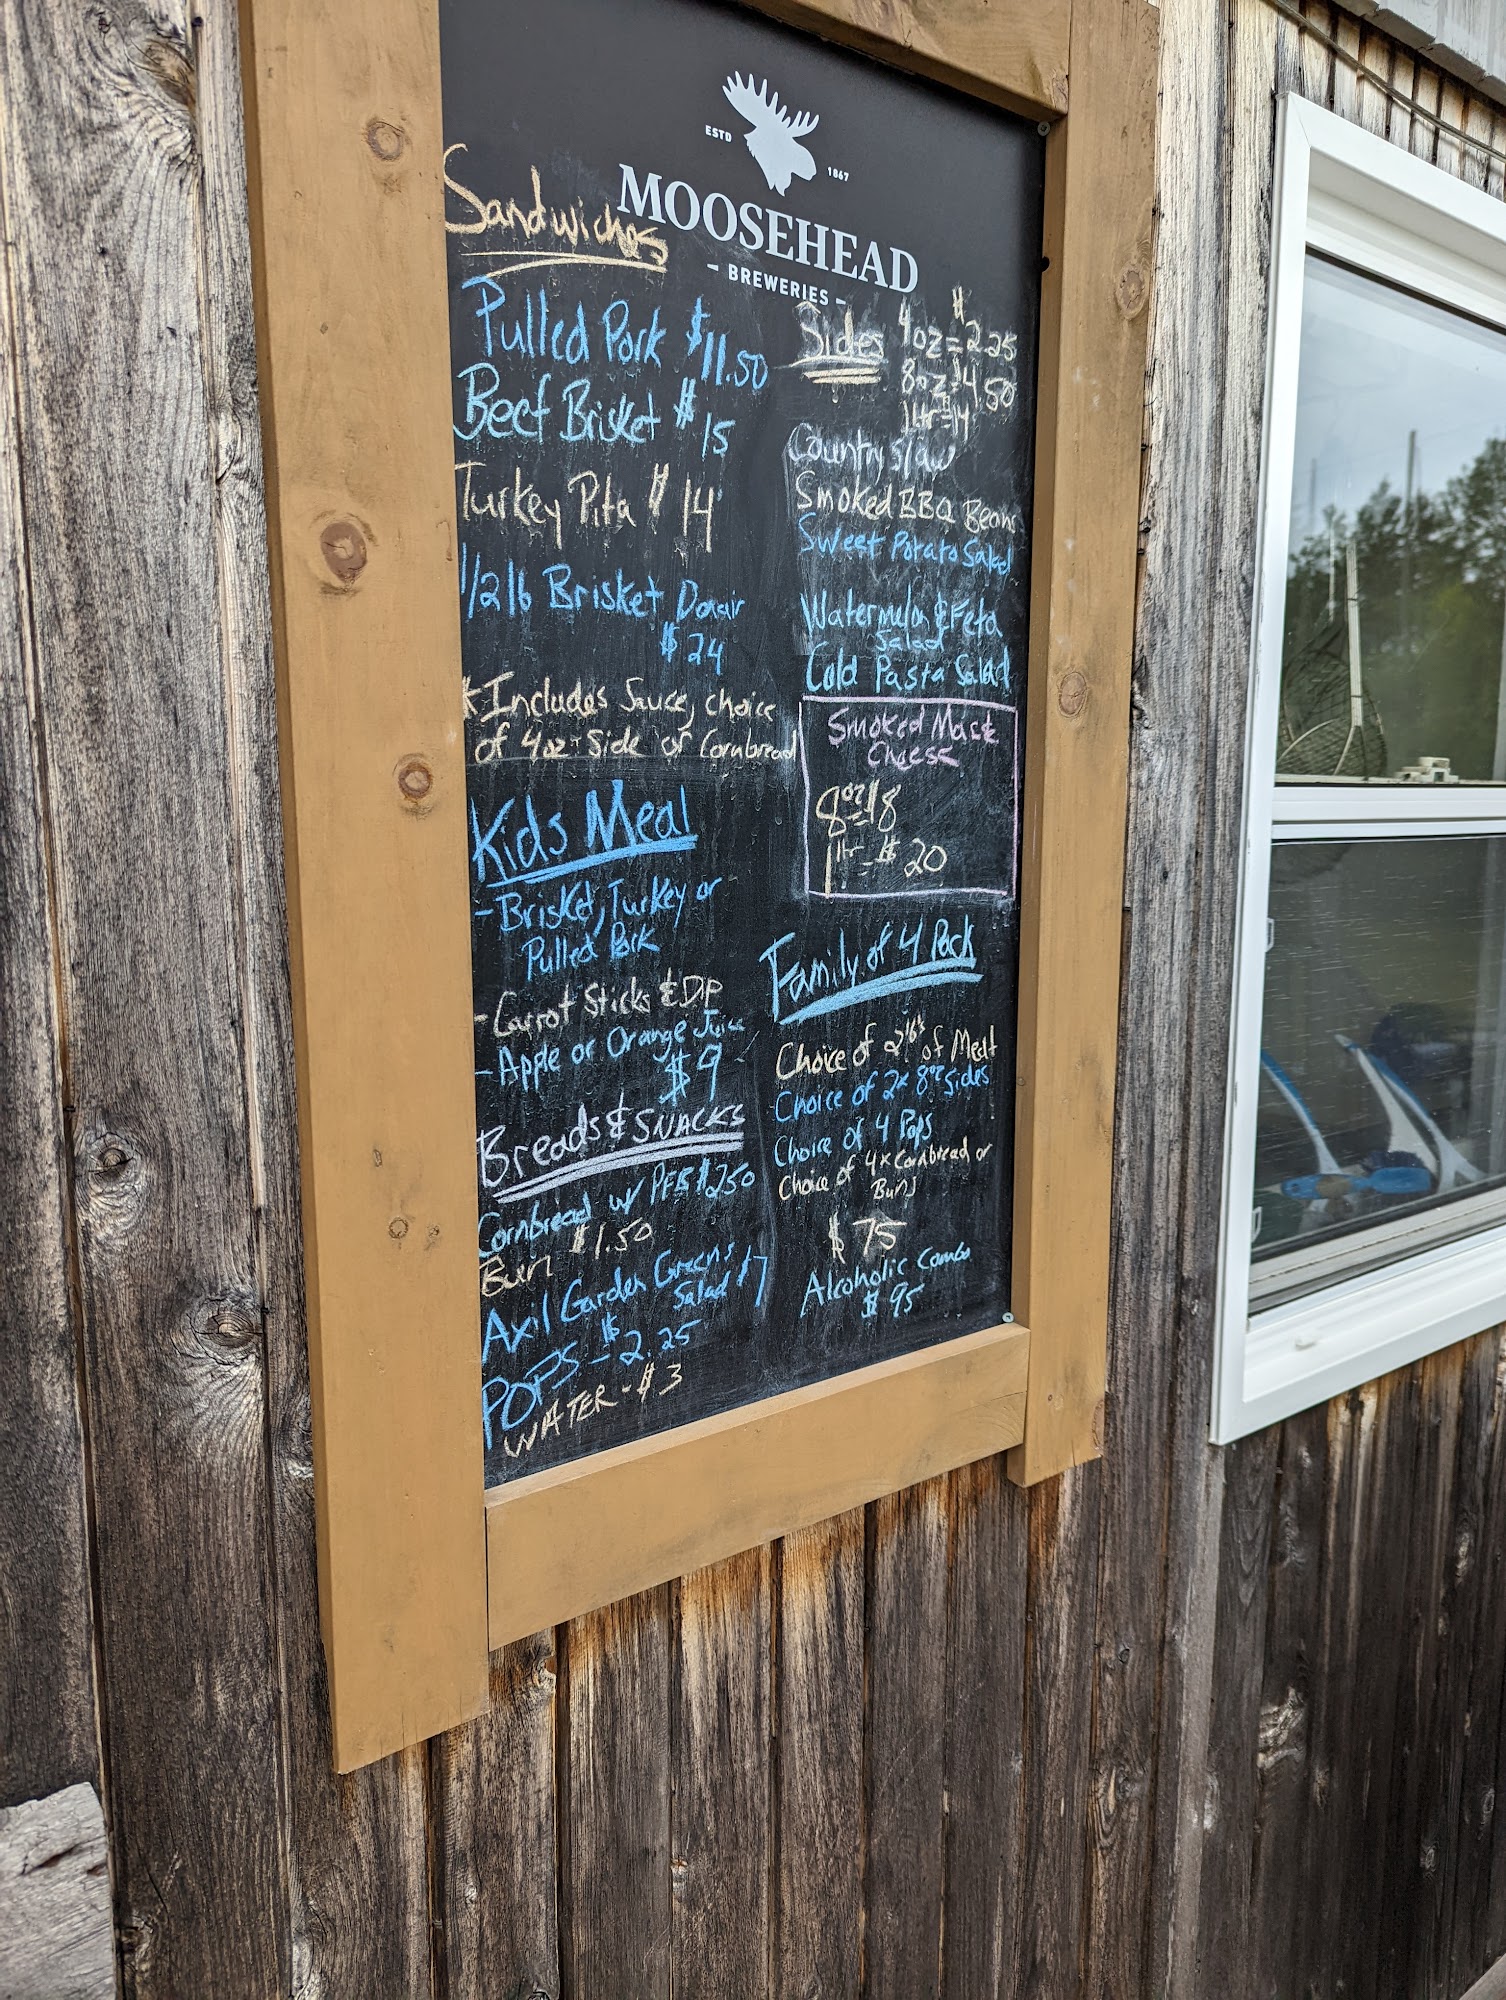 ESTD 1867
MOOSEHEAD
- BREWERIES -
Sandwiches
Pulled Pork $11.50
Beef Brisket $15
Turkey Pita $14
1/2 lb Brisket Donair
$24
* Includes Sauce, choice
of 4oz Side or Cornbread
Kids Meal
- Brisket, Turkey or
Pulled Pork
- Carrot Sticks & Dip
- Apple or Orange Juice
$9
Breads & SNACKS
Cornbread w/ $2.50
Bun $1.50
Axil Garden Greens
Salad $7
POPS - $2.25
WATER - $3
Sides 4oz = $2.25
8oz $4.50
1ltr = 14
Country slaw
Smoked BBQ Beans
Sweet Potato Salad
Watermelon & Feta
Salad
Cold Pasta Salad
Smoked Mac &
Cheese
8oz = $8
1ltr - $20
Family of 4 Pack
Choice of 2lb's of Meat
Choice of 2x 8oz Sides
Choice of 4 Pops
Choice of 4x Cornbread or
Buns
$75
Alcoholic Combo
$95